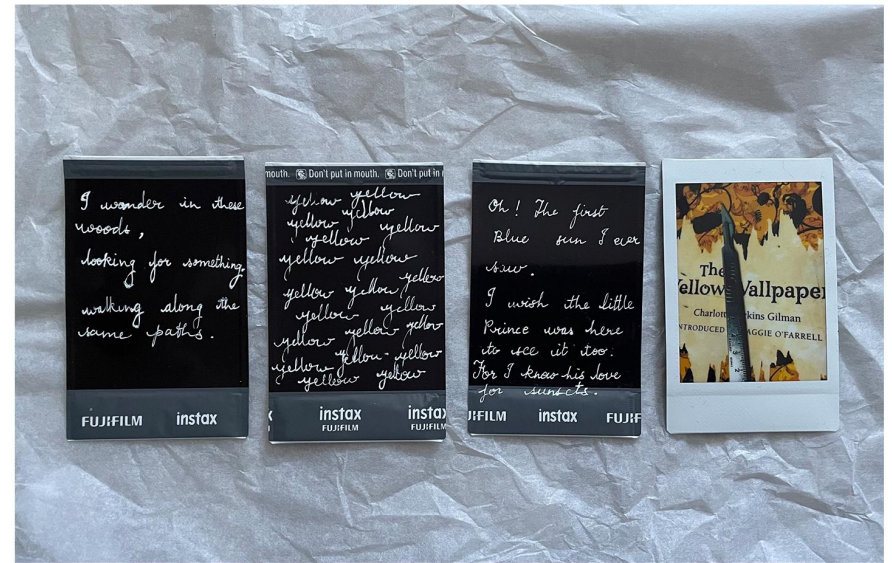 I wander in these
woods,
looking for something.
walking along the
same paths.
FUJIFILM instax
mouth. Don't put in mouth. Don't put in
yellow yellow
yellow yellow
yellow yellow
yellow
yellow yellow
yellow yellow yellow
yellow yellow
yellow yellow yellow
yellow yellow- yellow
yellow yellow
instax instax
FUJIFILM FUJIFILM
Oh! The first
Blue sun I ever
saw.
I wish the little
Prince was here
to see it too.
For I know his love
for sunsets.
JIFILM instax FUJIF
The
Yellow Wallpaper
Charlotte Perkins Gilman
INTRODUCED MAGGIE O'FARRELL